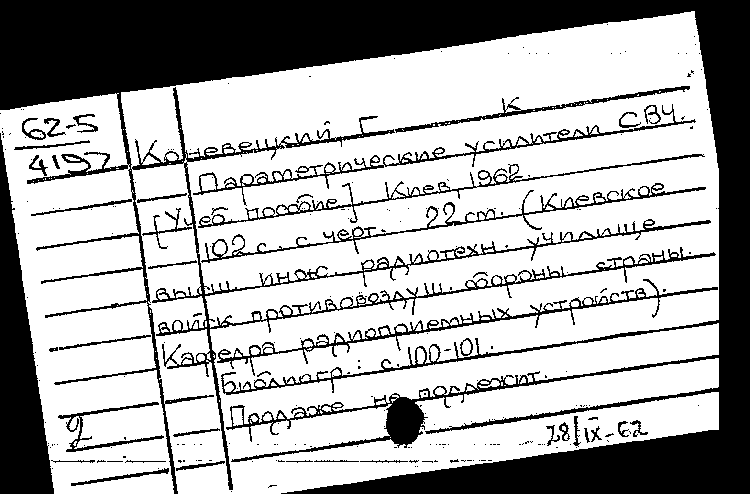 62-5
4197
К
Коневецкий, Г
Параметрические усилители СВЧ.
[Учеб. пособие]. Киев, 1962.
102 с. с черт. 22 см. (Киевское
высш. инж. радиотехн. училище
войск противовоздуш. обороны страны.
Кафедра радиоприемных устройств).
Библиогр.: с. 100-101.
Продаже не подлежит.
2
28/IX-62